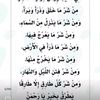 مِنْ شَرِّ مَا خَلَقَ وَذَرَأَ وَبَرَأَ
وَمِنْ شَرِّ مَا يَنْزِلُ مِنَ السَّمَاءِ
وَمِنْ شَرِّ مَا يَعْرُجُ فِيهَا
وَمِنْ شَرِّ مَا ذَرَأَ فِي الأَرْضِ
وَمِنْ شَرِّ مَا يَخْرُجُ مِنْهَا
وَمِنْ شَرِّ فِتَنِ اللَّيْلِ وَالنَّهَارِ
وَمِنْ شَرِّ كُلِّ طَارِقٍ إِلَّا طَارِقًا
يَطْرُقُ بِخَيْرٍ يَا رَحْمَنُ